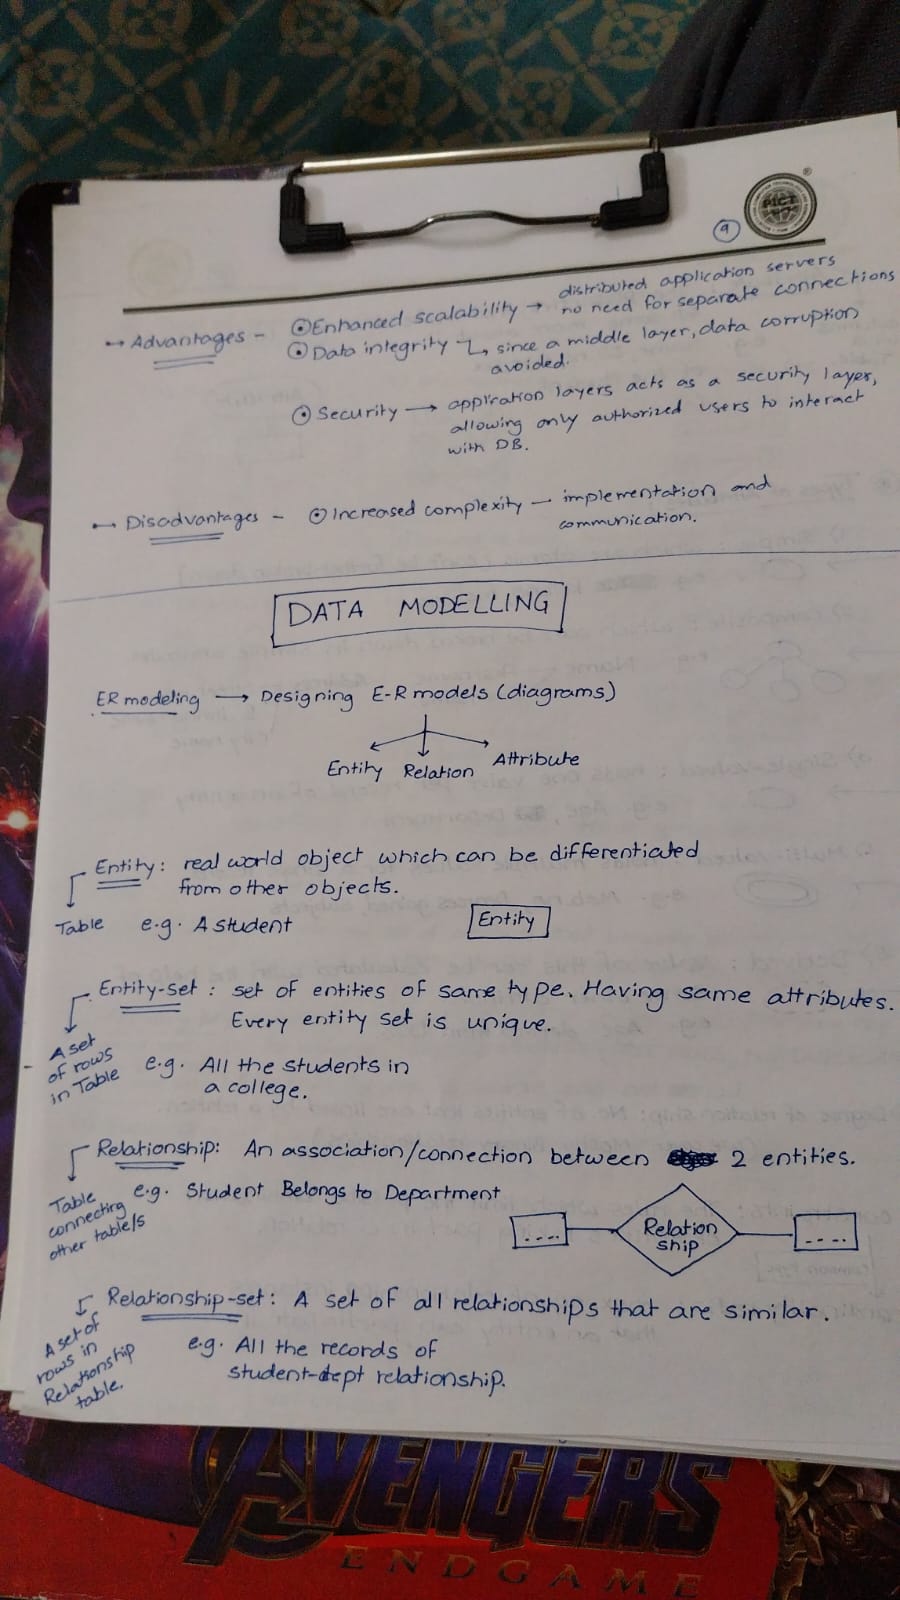 PICT
9
→ Advantages - ⊙ Enhanced scalability → distributed application servers
no need for separate connections
⊙ Data integrity ↳ since a middle layer, data corruption
avoided.
⊙ Security → application layers acts as a security layer,
allowing only authorized users to interact
with DB.
→ Disadvantages - ⊙ Increased complexity - implementation and
communication.
DATA MODELLING
ER modeling → Designing E-R models (diagrams)
Entity Relation Attribute
Entity: real world object which can be differentiated
from other objects.
Table e.g. A student
Entity
Entity-set : set of entities of same type. Having same attributes.
Every entity set is unique.
A set
of rows
in Table
e.g. All the students in
a college.
Relationship: An association/connection between 2 entities.
Table
connecting
other table/s
e.g. Student Belongs to Department
.... Relation
ship ....
Relationship-set: A set of all relationships that are similar.
A set of
rows in
Relationship
table.
e.g. All the records of
student-dept relationship.
AVENGERS
ENDGAME